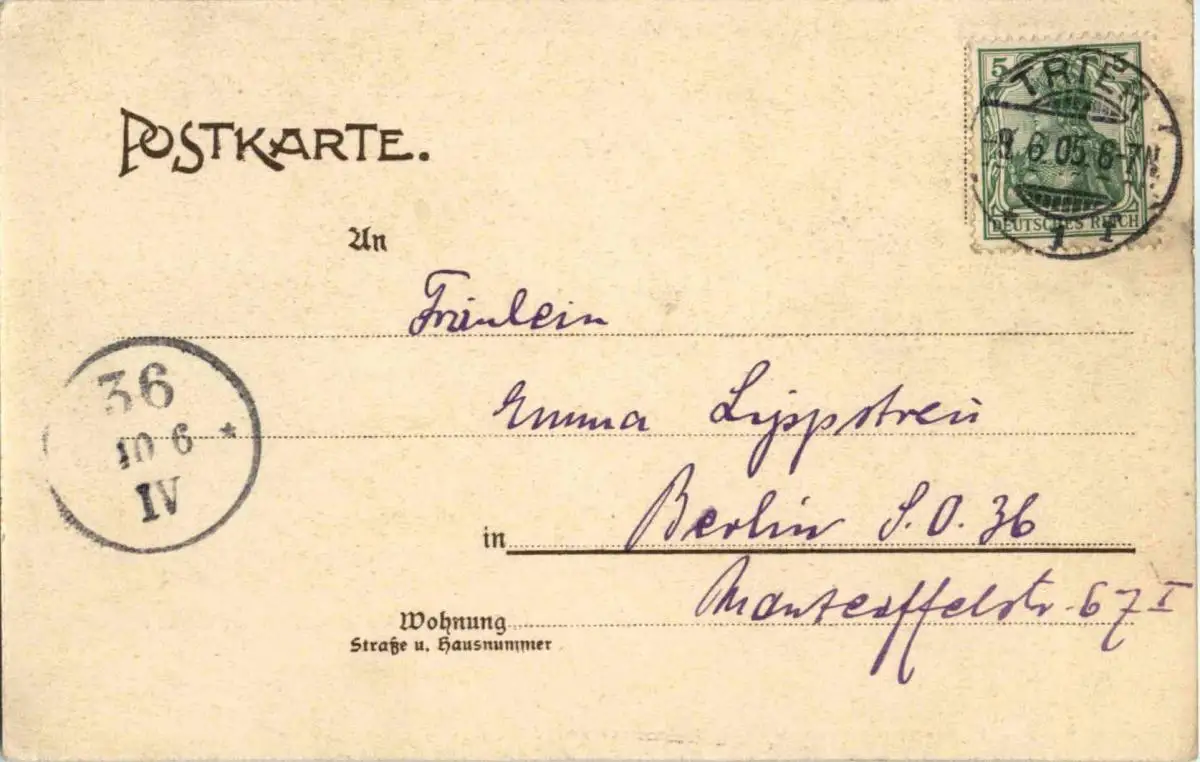 POSTKARTE.
5 5
TRIER
-9. 6 05. 6-7N.
DEUTSCHES REICH
* 1 I
An
Fräulein
Emma Lippstreu
36
10 6 *
IV
in Berlin S.O. 36
Manteuffelstr. 67 I
Wohnung
Straße u. Hausnummer